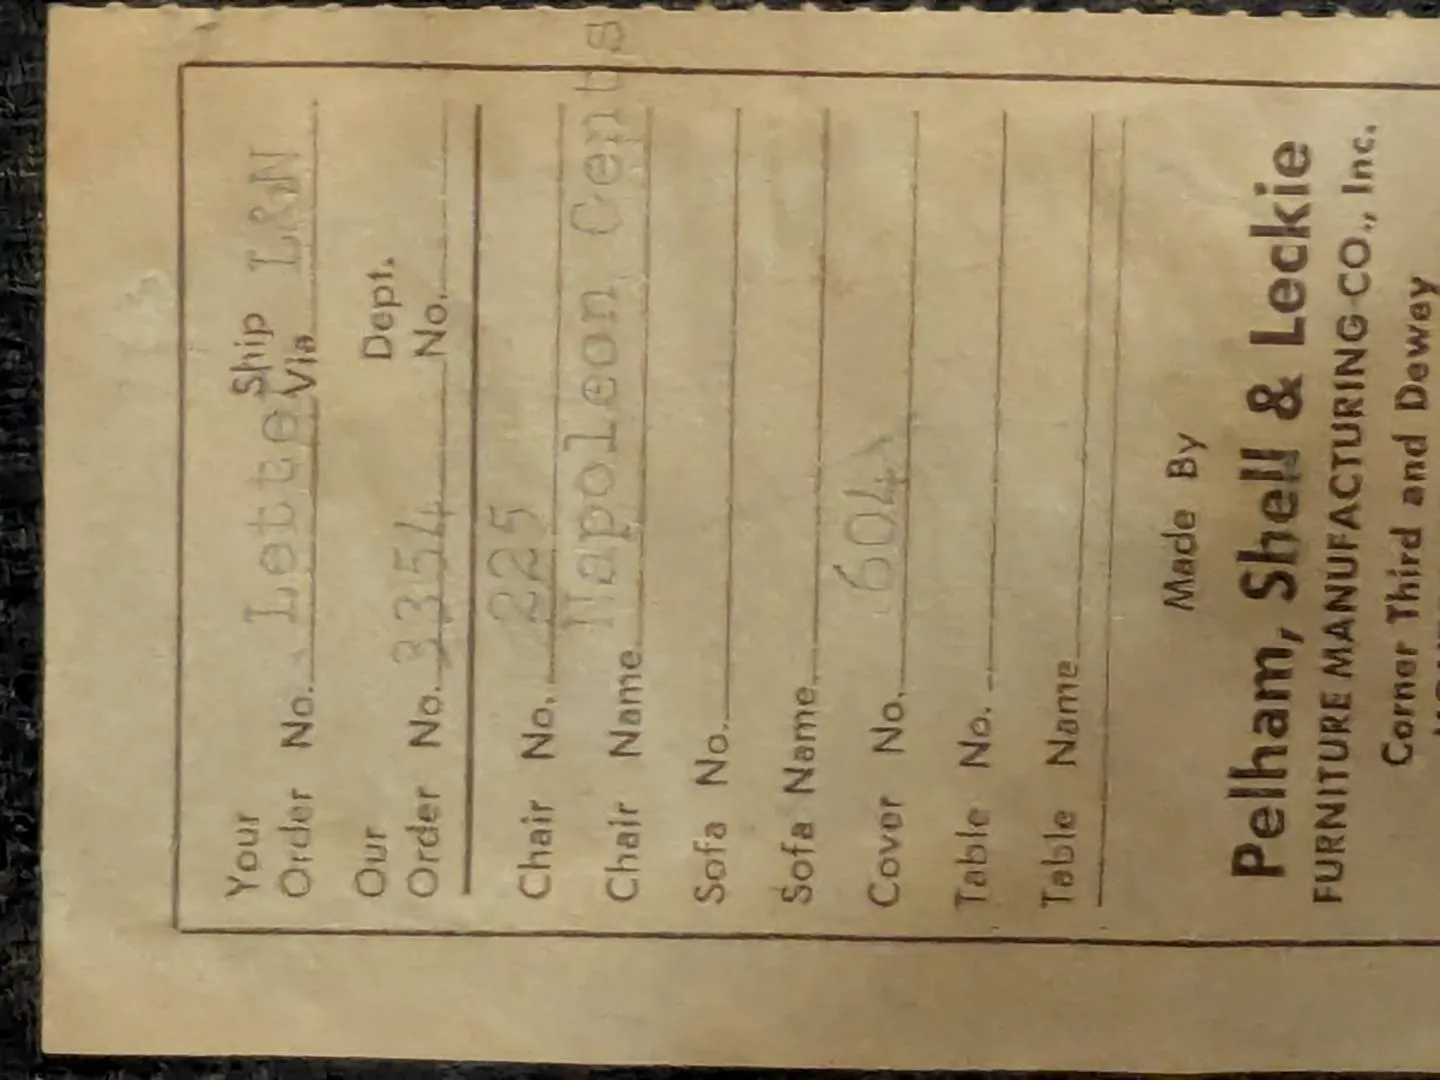 Your Ship
Order No. Letter Via L&N
Our Dept.
Order No. 3354 No.
Chair No. 225
Chair Name Napoleon Cents
Sofa No.
Sofa Name
Cover No. 604
Table No.
Table Name
Made By
Pelham, Shell & Leckie
FURNITURE MANUFACTURING CO., Inc.
Corner Third and Dewey